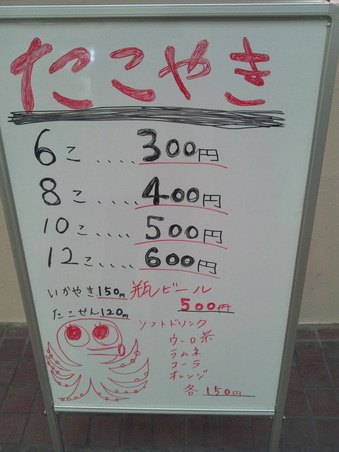 たこやき
6こ....300円
8こ....400円
10こ....500円
12こ....600円
いかやき150円
たこせん120円
瓶ビール
500円
ソフトドリンク
ウーロ茶
ラムネ
コーラ
オレンジ
各150円